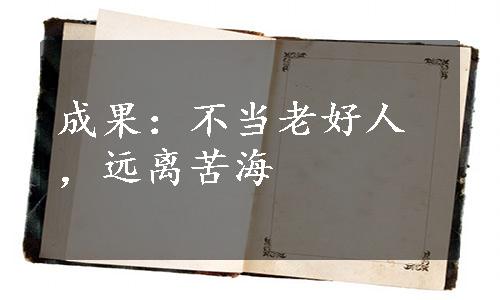 成果：不当老好人
，远离苦海